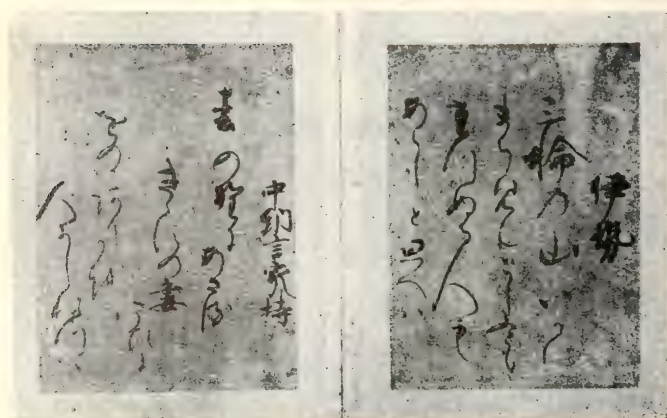 伊勢
三輪の山いかに
まち見んとしふとも
たつぬる人も
あらしと思へは
中納言家持
春の野にあさる
きゝすの妻
こひに
をのかありかを
人にしれつゝ